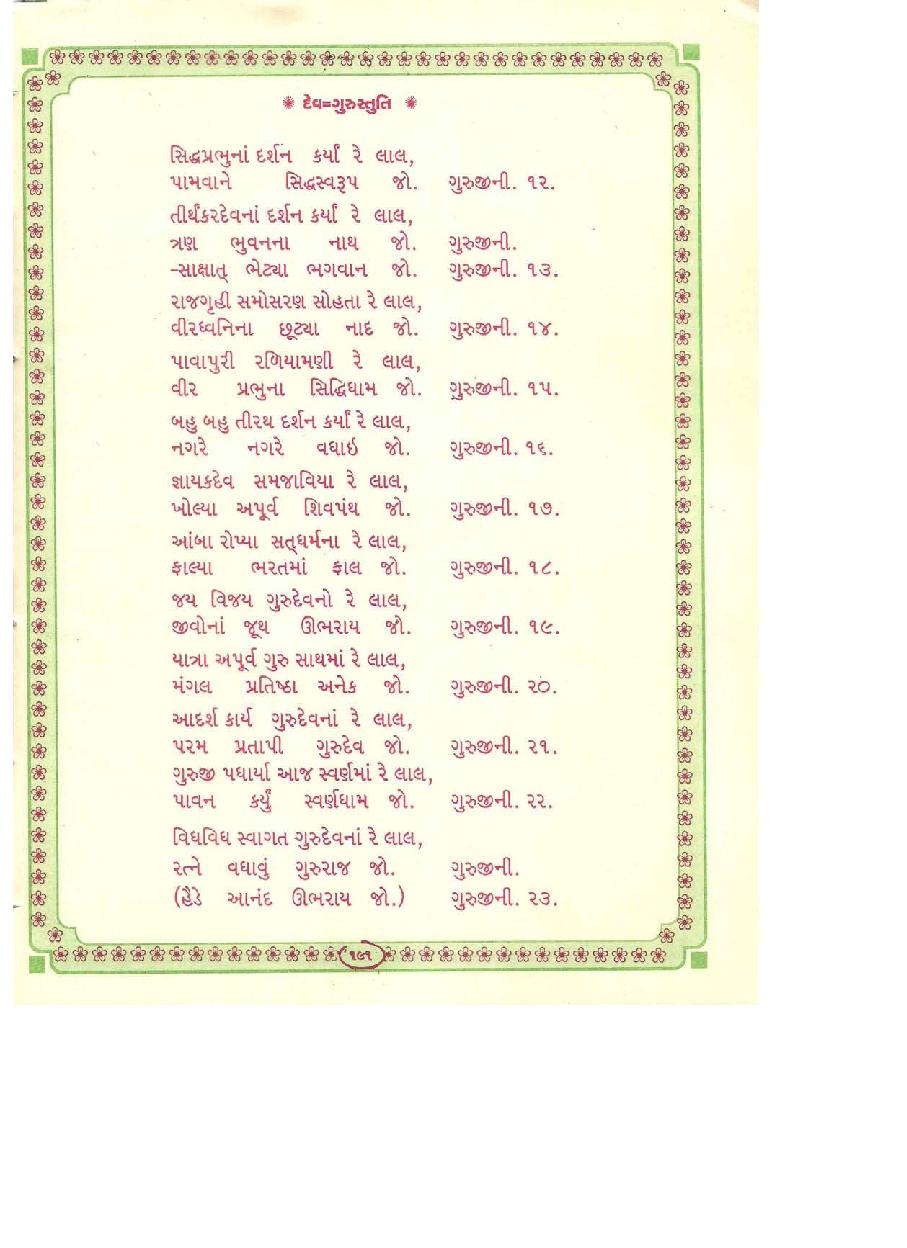 દેવ=ગુરુસ્તુતિ
સિદ્ધપ્રભુનાં દર્શન કર્યાં રે લાલ,
પામવાને સિદ્ધસ્વરૂપ જો. ગુરુજીની. ૧૨.
તીર્થંકરદેવનાં દર્શન કર્યાં રે લાલ,
ત્રણ ભુવનના નાથ જો. ગુરુજીની.
-સાક્ષાત્ ભેટ્યા ભગવાન જો. ગુરુજીની. ૧૩.
રાજગૃહી સમોસરણ સોહતા રે લાલ,
વીરધ્વનિના છૂટ્યા નાદ જો. ગુરુજીની. ૧૪.
પાવાપુરી રળિયામણી રે લાલ,
વીર પ્રભુના સિદ્ધિધામ જો. ગુરુજીની. ૧૫.
બહુ બહુ તીરથ દર્શન કર્યાં રે લાલ,
નગરે નગરે વધાઇ જો. ગુરુજીની. ૧૬.
જ્ઞાયકદેવ સમજાવિયા રે લાલ,
ખોલ્યા અપૂર્વ શિવપંથ જો. ગુરુજીની. ૧૭.
આંબા રોપ્યા સત્ધર્મના રે લાલ,
ફાલ્યા ભરતમાં ફાલ જો. ગુરુજીની. ૧૮.
જય વિજય ગુરુદેવનો રે લાલ,
જીવોનાં જૂથ ઊભરાય જો. ગુરુજીની. ૧૯.
યાત્રા અપૂર્વ ગુરુ સાથમાં રે લાલ,
મંગલ પ્રતિષ્ઠા અનેક જો. ગુરુજીની. ૨૦.
આદર્શ કાર્ય ગુરુદેવનાં રે લાલ,
પરમ પ્રતાપી ગુરુદેવ જો. ગુરુજીની. ૨૧.
ગુરુજી પધાર્યા આજ સ્વર્ણમાં રે લાલ,
પાવન કર્યું સ્વર્ણધામ જો. ગુરુજીની. ૨૨.
વિધવિધ સ્વાગત ગુરુદેવનાં રે લાલ,
રત્ને વધાવું ગુરુરાજ જો. ગુરુજીની.
(હૈડે આનંદ ઊભરાય જો.) ગુરુજીની. ૨૩.
૧૯૧